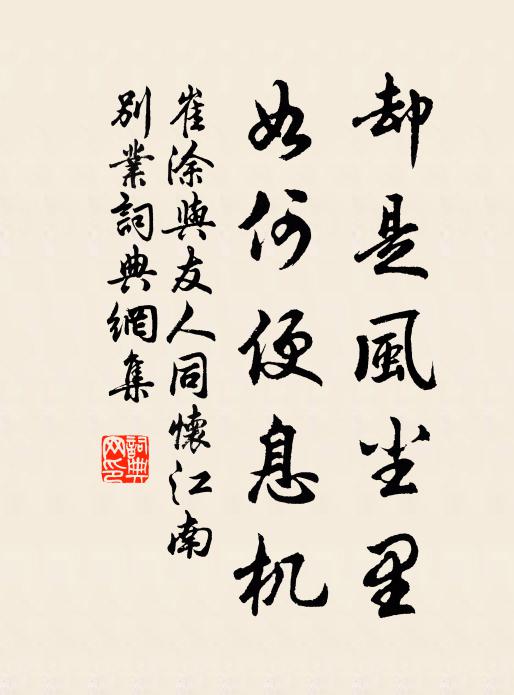 却是風尘里
如何便息机
崔涂與友人同懷江南
别業詞典網集
詞典网印